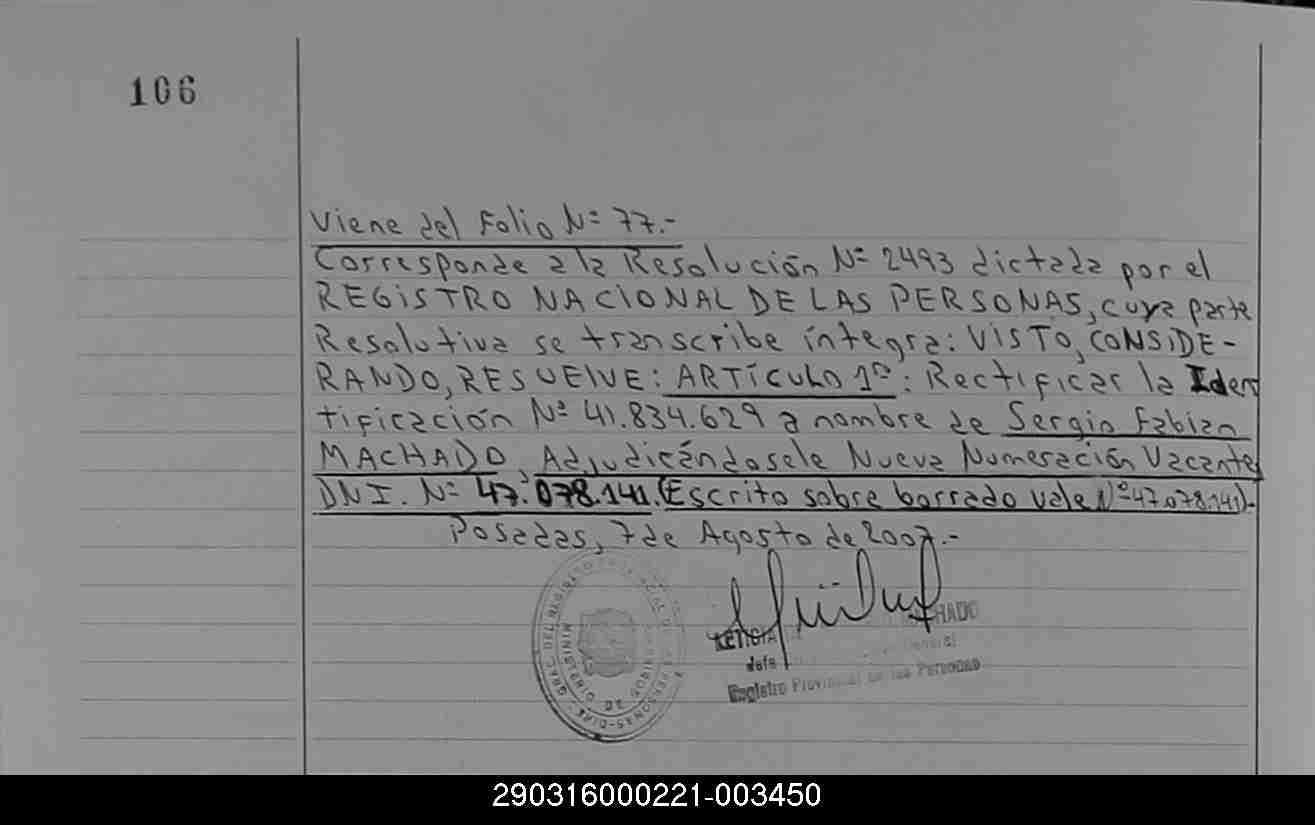 106
Viene del Folio Nº 77.-
Corresponde a la Resolución Nº 2493 dictada por el
REGISTRO NACIONAL DE LAS PERSONAS, cuya parte
Resolutiva se transcribe íntegra: VISTO, CONSIDE-
RANDO, RESUELVE: ARTÍCULO 1º: Rectificar la Iden
tificación Nº 41.834.629 a nombre de Sergio Fabian
MACHADO, Adjudicándosele Nueva Numeración Vacante
DNI. Nº 47.078.141. (Escrito sobre borrado vale Nº 47.078.141).-
Posadas, 7 de Agosto de 2007.-
LETICIA MACHADO
Jefe General
Registro Provincial de las Personas
MINISTERIO DE
290316000221-003450